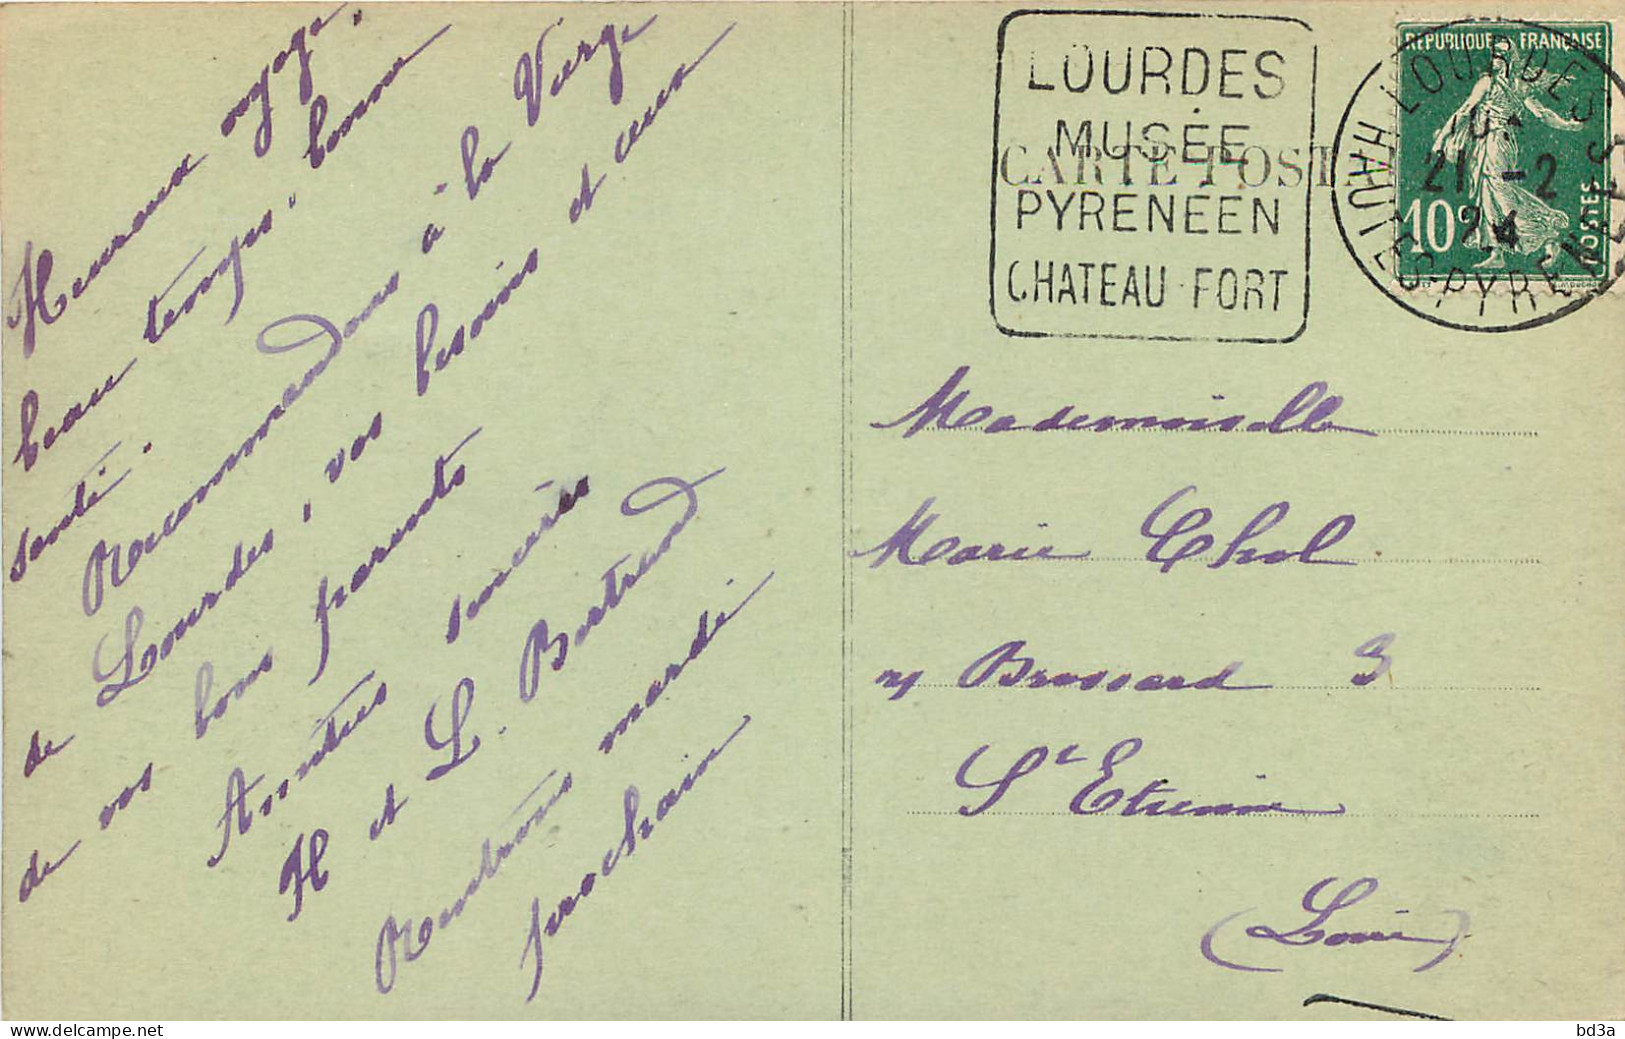 Heureux voyage,
beau temps, bonne
santé.
Recommandons à la Vierge
de Lourdes, vos besoins et ceux
de vos bons parents
Amitiés sincères
H et L. Bertrand
Rentrons mardi
prochain
LOURDES
MUSÉE
PYRENÉEN
CHATEAU FORT
CARTE POSTA
REPUBLIQUE FRANÇAISE
10c
POSTES
LOURDES
21 -2
24
HAUTES-PYRENEES
Mademoiselle
Marie Chol
Brossard 3
St Etienne
(Loire)
www.delcampe.net
bd3a